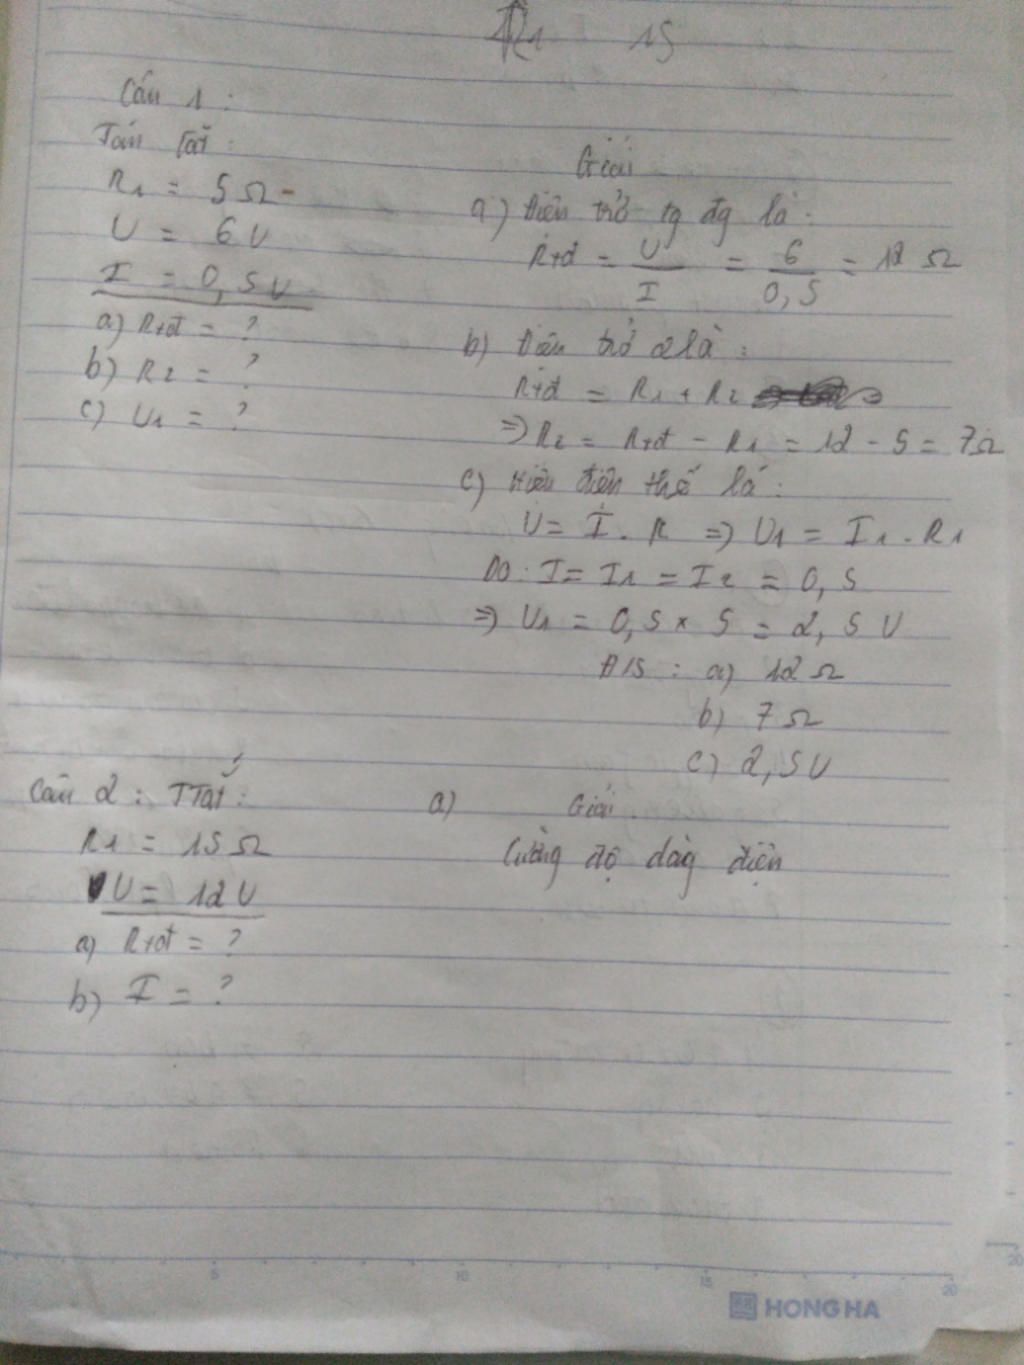 R1 15
Câu 1 :
Tóm tắt :
R1 = 5 Ω
U = 6 V
I = 0,5 V
a) Rtđ = ?
b) R2 = ?
c) U1 = ?
Giải
a) Điện trở tg đg là :
Rtđ = U / I = 6 / 0,5 = 12 Ω
b) Điện trở 2 là :
Rtđ = R1 + R2
=> R2 = Rtđ - R1 = 12 - 5 = 7Ω
c) Hiệu điện thế là :
U = I . R => U1 = I1 . R1
Do : I = I1 = I2 = 0,5
=> U1 = 0,5 x 5 = 2,5 V
Đ/S : a) 12 Ω
b) 7 Ω
c) 2,5V
Câu 2 : TTắt :
R1 = 15 Ω
U = 12 V
a) Rtđ = ?
b) I = ?
a) Giải
Cường độ dòg điện
5 10 15 20
20
HONG HA